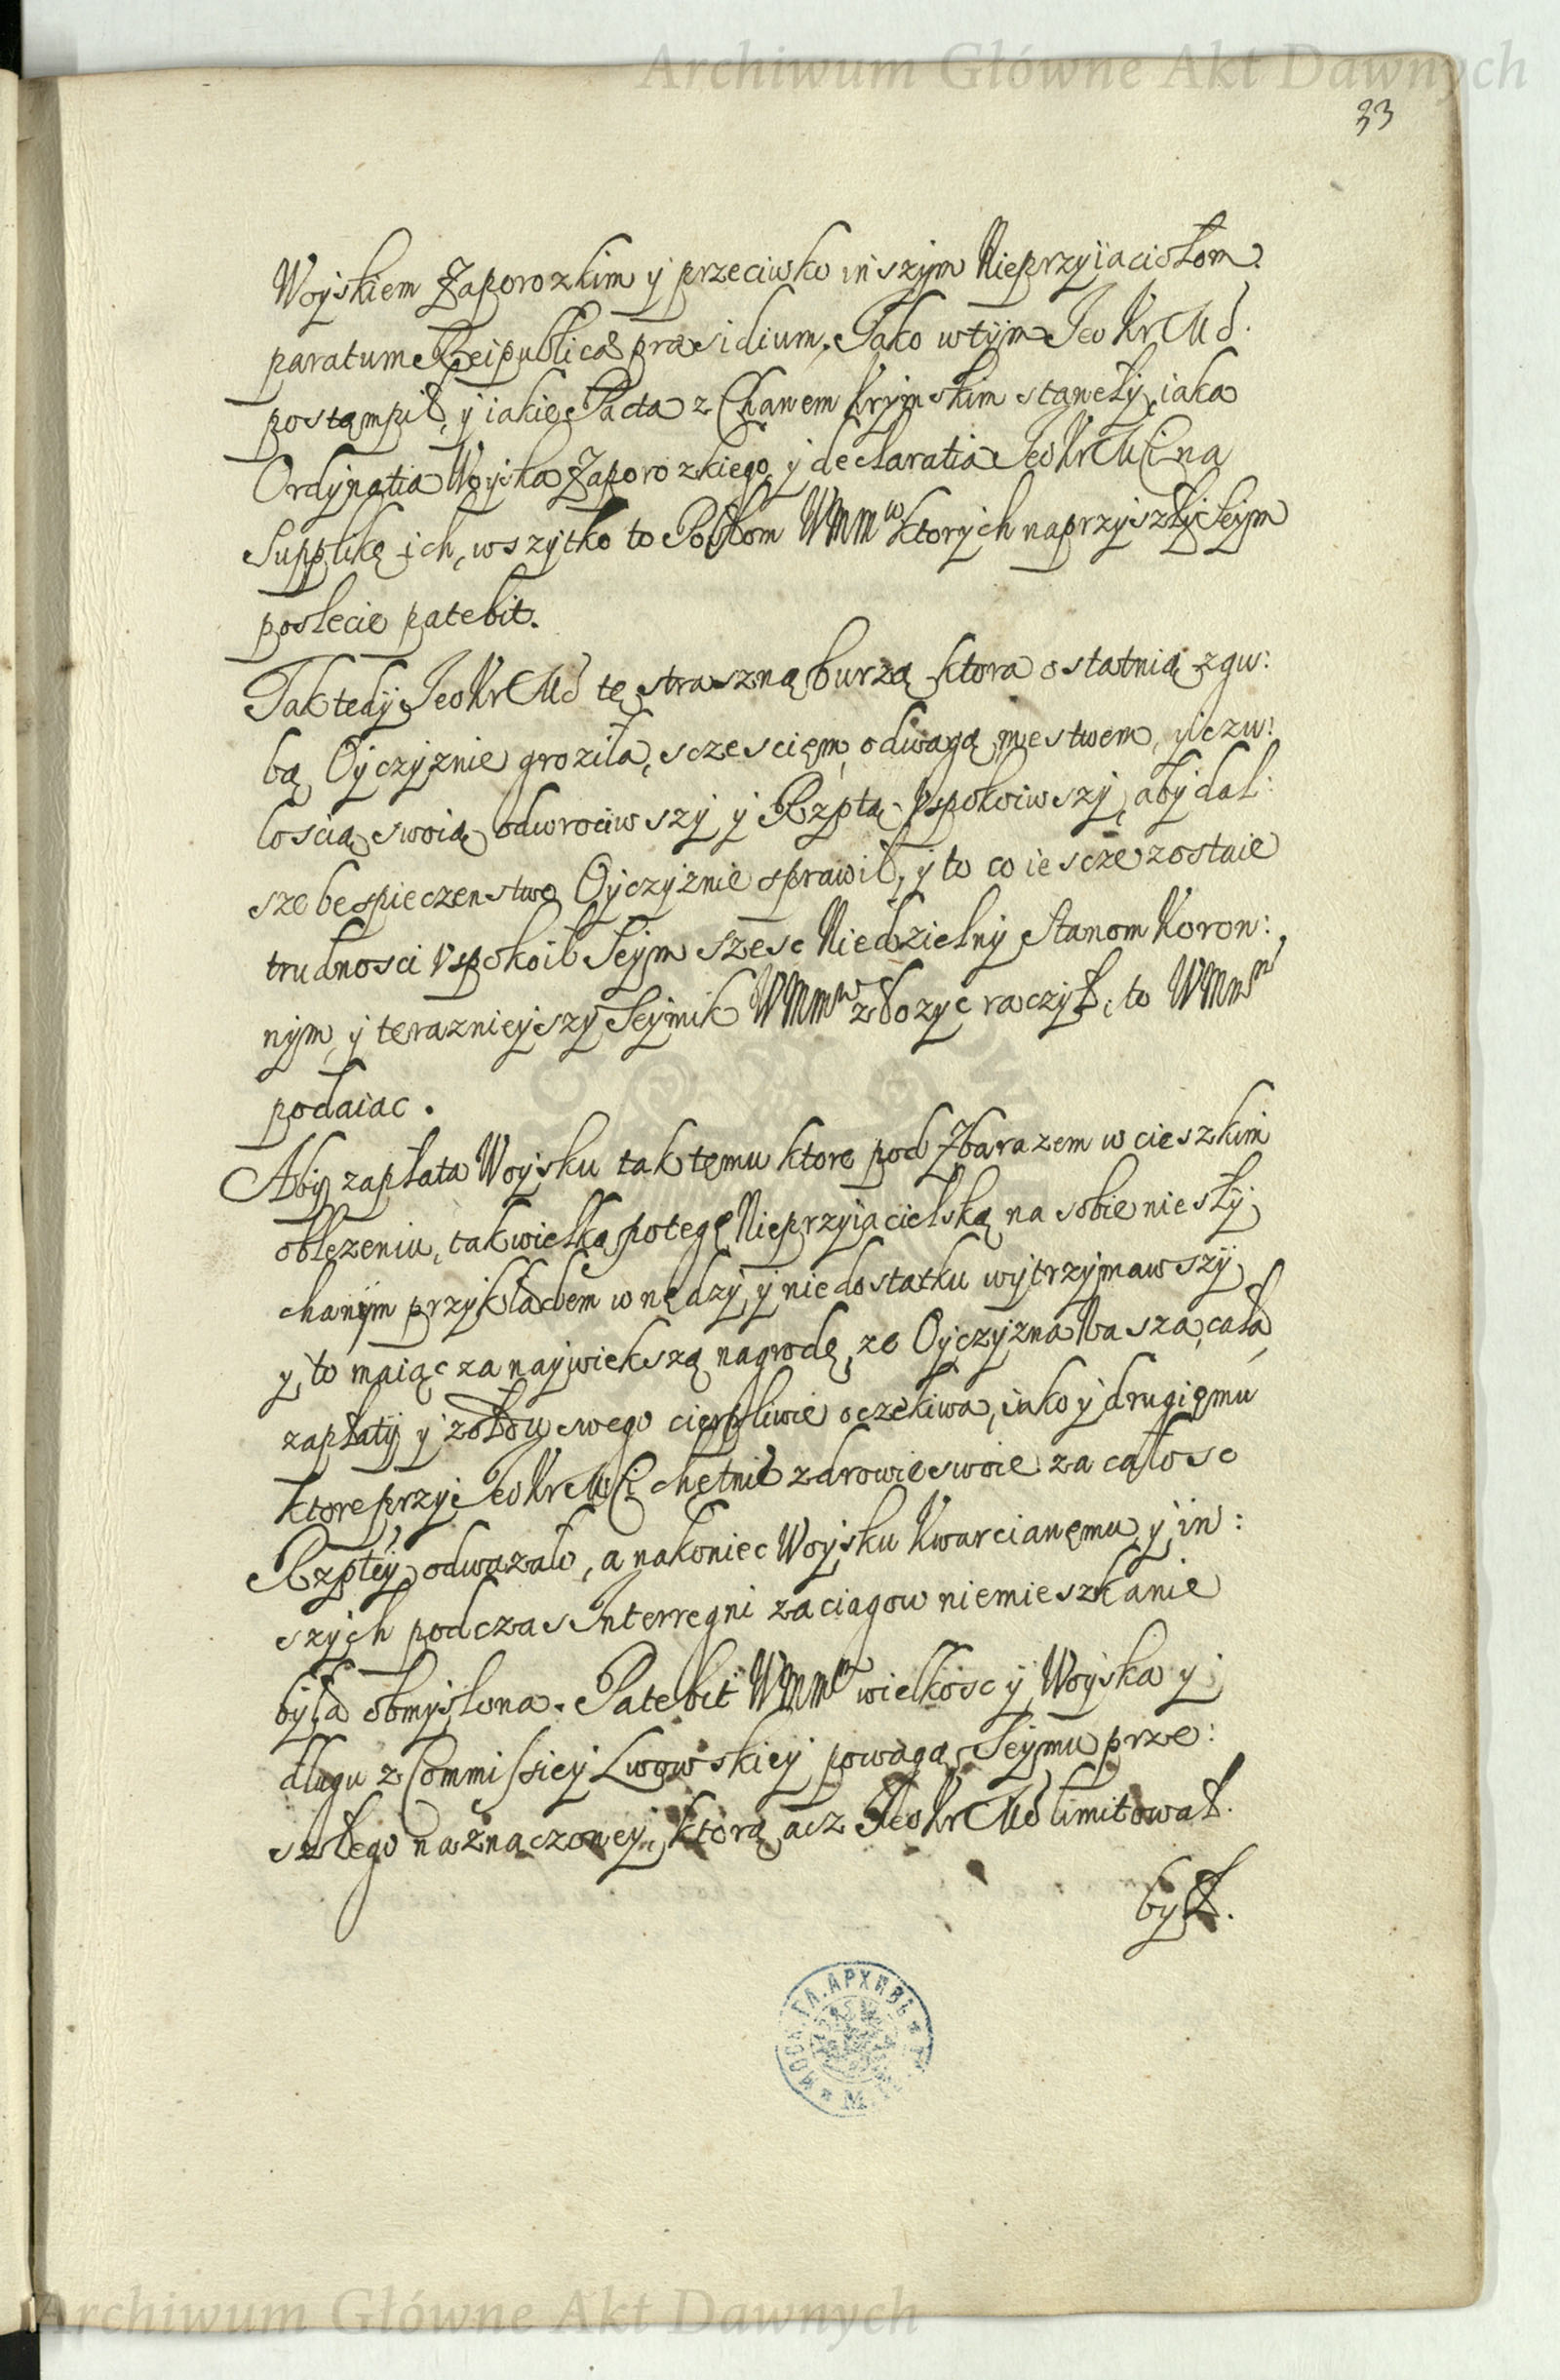 Archiwum Główne Akt Dawnych
33
Woyskiem Zaporozkim y przeciwko inszym Nieprzyiaciołom
paratum Reipublicæ præsidium. Jako wtym Jeo Kr Mć
postąmpił, y iakie Pacta z Chanem Krymskim stanęły, iaka
Ordynatia Woyska Zaporozkiego, y declaratia Jeo Kr Mći na
Supplikę ich, wszytko to Posłom WMm w ktorych naprzyszły Seym
poslecie patebit.
Tak tedy Jeo Kr Mć tę straszną burzą ktora ostatnią zgu:
bą Oyczyznie groziła, sczescięm, odwagą, męstwem, y czu:
loscią swoią odwrociwszy y Rzptą vspokoiwszy, aby dal:
sze bespieczenstwo Oyczyznie sprawił, y to co iescze zostaie
trudnosci vspokoił Seym szesc Niedzielny Stanom Koron:
nym, y teraznieyszy Seymik WMm złozyc raczył, to WMm
podaiac.
Aby zapłata Woysku tak temu ktore pod Zbarazem w cieszkim
oblęzeniu, tak wielką potegę Nieprzyiacielską na sobie niesły
chanym przykładem w nędzy, y niedostatku wytrzymawszy
y to maiąc za naywiekszą nagrodę, ze Oyczyzna Wasza cała,
zapłaty y zołdu swego cięrpliwie oczekiwa, iako y drugięmu
ktore przy Jeo Kr Mći chętnie zdrowie swoie za całosc
Rzptey odwazało, a nakoniec Woysku Kwarcianęmu, y in:
szych podczas Interregni zaciagow niemieszkanie
była obmyslona. Patebit WMm wielkosc y Woyska y
dlugu z Commissiey Lwowskiey powagą Seymu prze:
szłego naznaczoney, ktorą acz Jeo Kr Mć limitował
był.
Archiwum Główne Akt Dawnych